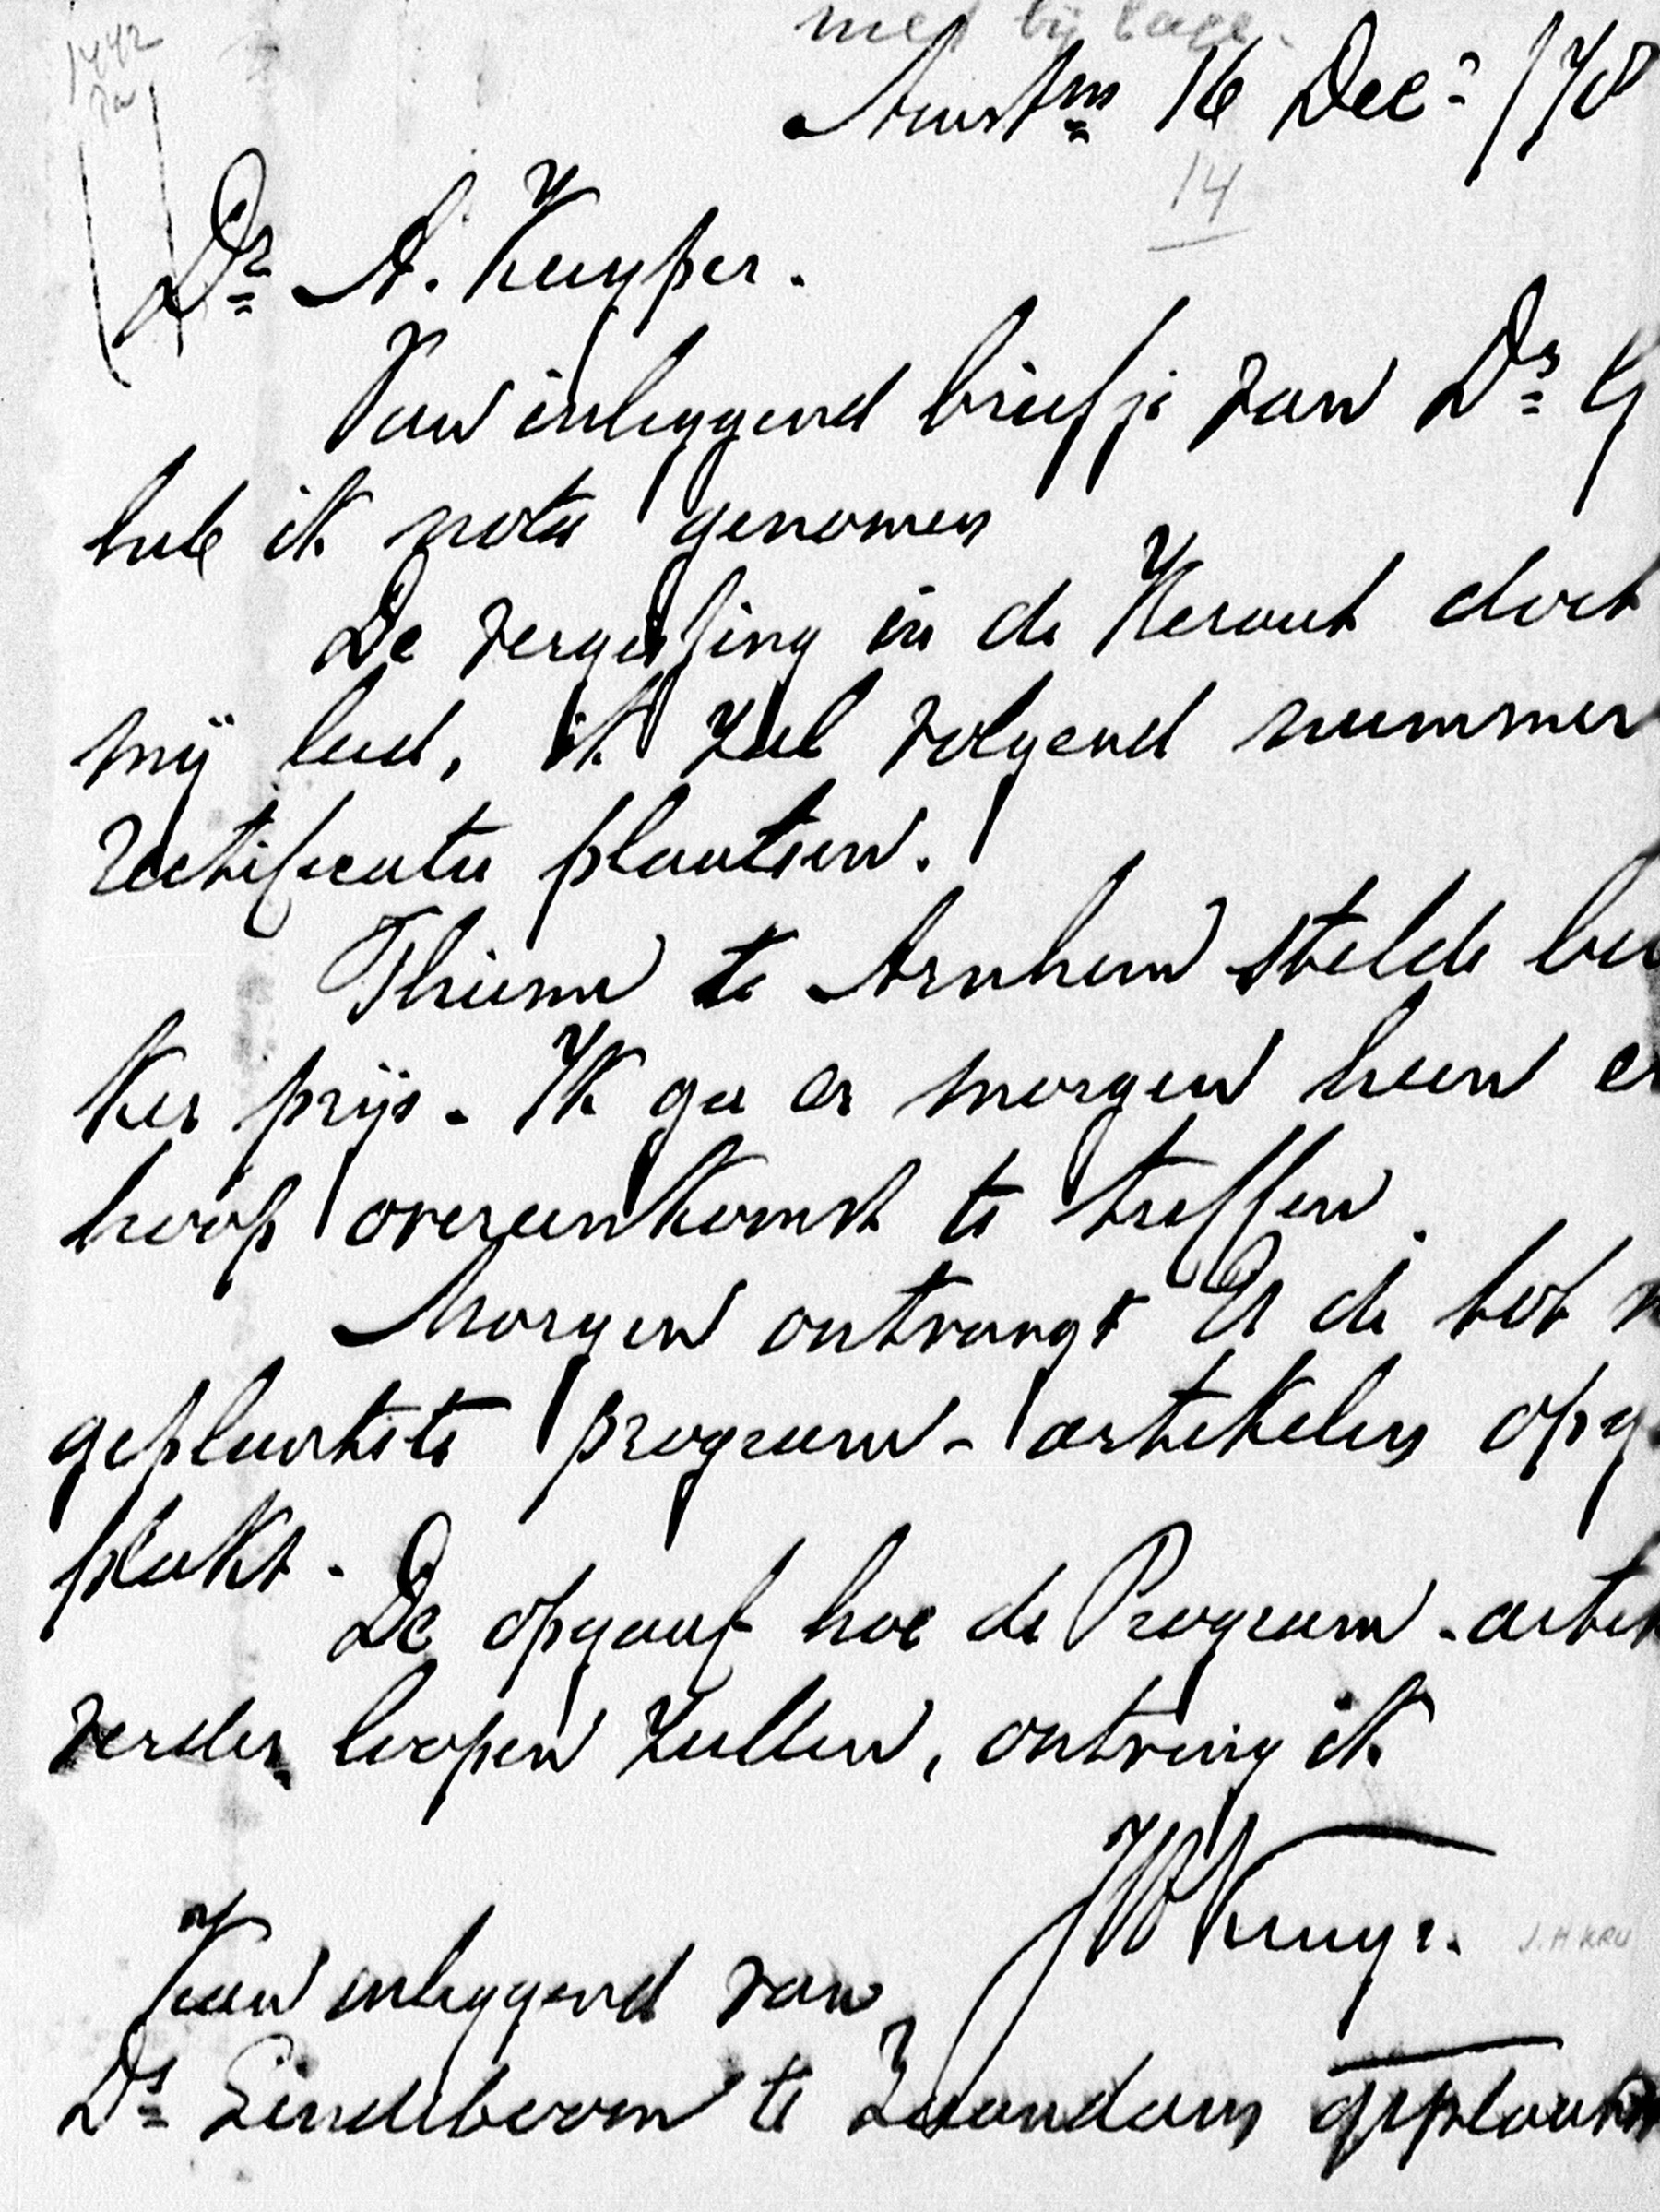 1442
met bijlage.
Amstm 16 Decr /78
14
Dr A. Kuyper.
Van inleggend briefje van Ds G
heb ik nota genomen
De vergissing in de Heraut doet
mij leed, ik zal volgend nummer
rectificatie plaatsen.
Thieme te Arnhem stelde
ker prijs. Ik ga er morgen heen e
hoop overeenkomst te treffen.
Morgen ontvangt U de tot n
geplaatste program-artikelen opge
plakt.
De opgaaf hoe de Program-artik
verder loopen zullen, ontving ik
JHKruyt.
J.H KRU
Kan inleggend van
Ds Lindeboom te Zaandam geplaatst